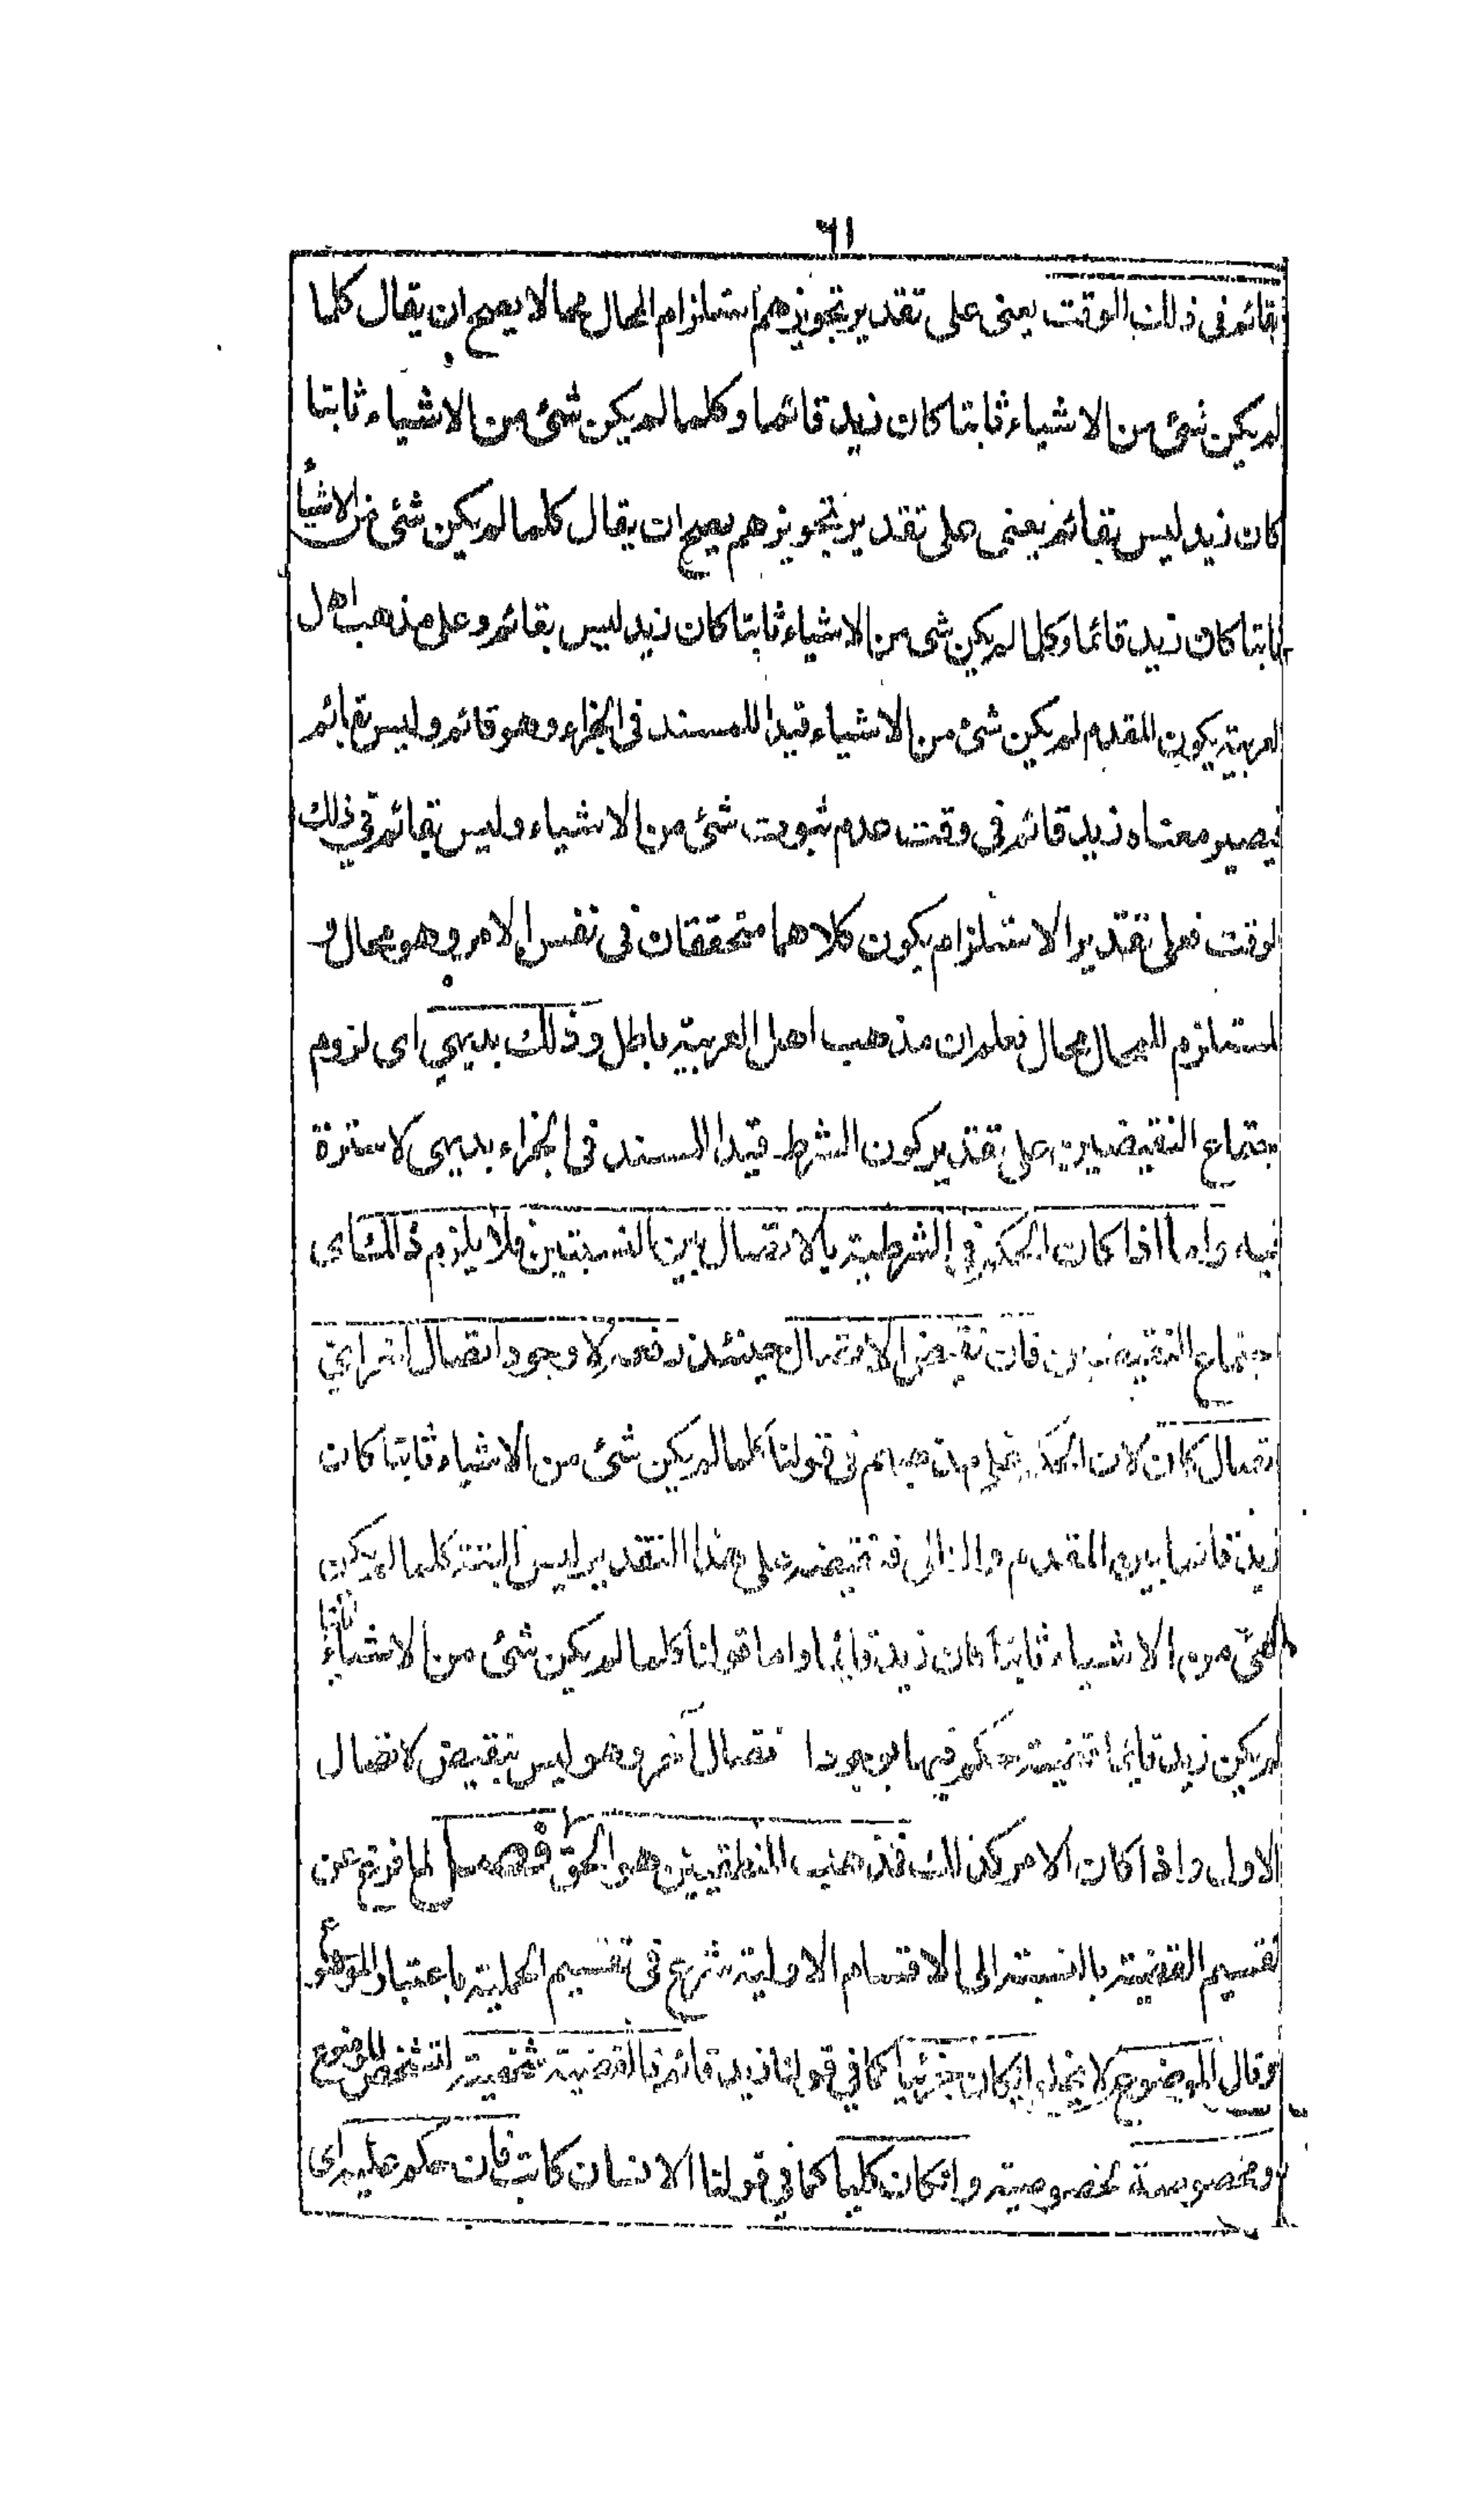 ٦١
بقائم في ذلك الوقت يعنى على تقدير تجويزهم استلزام المحال محالا يصح ان يقال كلما
لم يكن شئ من الاشياء ثابتا كان زيد قائما وكلما لم يكن شئ من الاشياء ثابتا
كان زيد ليس بقائم يعنى على تقدير تجويزهم يصح ان يقال كلما لم يكن شئ من الاشيأ
ثابتا كان زيد قائما وكلما لم يكن شى من الاشياء ثابتا كان زيد ليس بقائم وعلى مذهب اهل
العربية يكون المقدم لم يكن شئ من الاشياء قيدا للمسند فى الجزاء وهو قائم وليس بقائم
فيصير معناه زيد قائم فى وقت عدم ثبوت شئ من الاشياء وليس بقائم في ذلك
الوقت فعلى تقدير الاستلزام يكون كلاهما متحققان فى نفس الامر وهو محال و
المستلزم للمحال محال فعلم ان مذهب اهل العربية باطل وذلك بديهي اى لزوم
اجتماع النقيضين على تقدير كون الشرط قيدا للمسند فى الجزاء بديهى لا سترة
فيه واما اذا كان الحكم في الشرطية بالاتصال بين النسبتين فلا يلزم ذلك اى
اجتماع النقيضين فان نقيض الاتصال حينئذ رفعه لا وجود اتصال اخر اي
اتصال كان لان الحكم على مذهبهم فى قولنا كلما لم يكن شئ من الاشياء ثابتا كان
زيد قائما بين المقدم والتالى فنقيضه على هذا التقدير ليس البتة كلما لم يكن
شئ من الاشياء ثابتا كان زيد قائما واما قولنا كلما لم يكن شئ من الاشياء ثابتا
لم يكن زيد قائما قضية حكم فيها بوجود اتصال آخر وهو ليس بنقيض لاتصال
الاول واذا كان الامر كذلك فمذهب المنطقيين هو الحق فصل لما فرغ عن
تقسيم القضية بالنسبة الى الاقسام الاولية شرع فى تقسيم الحملية باعتبار الموضوع
وقال الموضوع لا يخلو ان كان جزئيا كما في قولنا زيد قائم فالقضية شخصية لتشخص الموضوع
ومخصوصة لخصوصيته وان كان كليا كما في قولنا الانسان كاتب فان حكم عليه اى